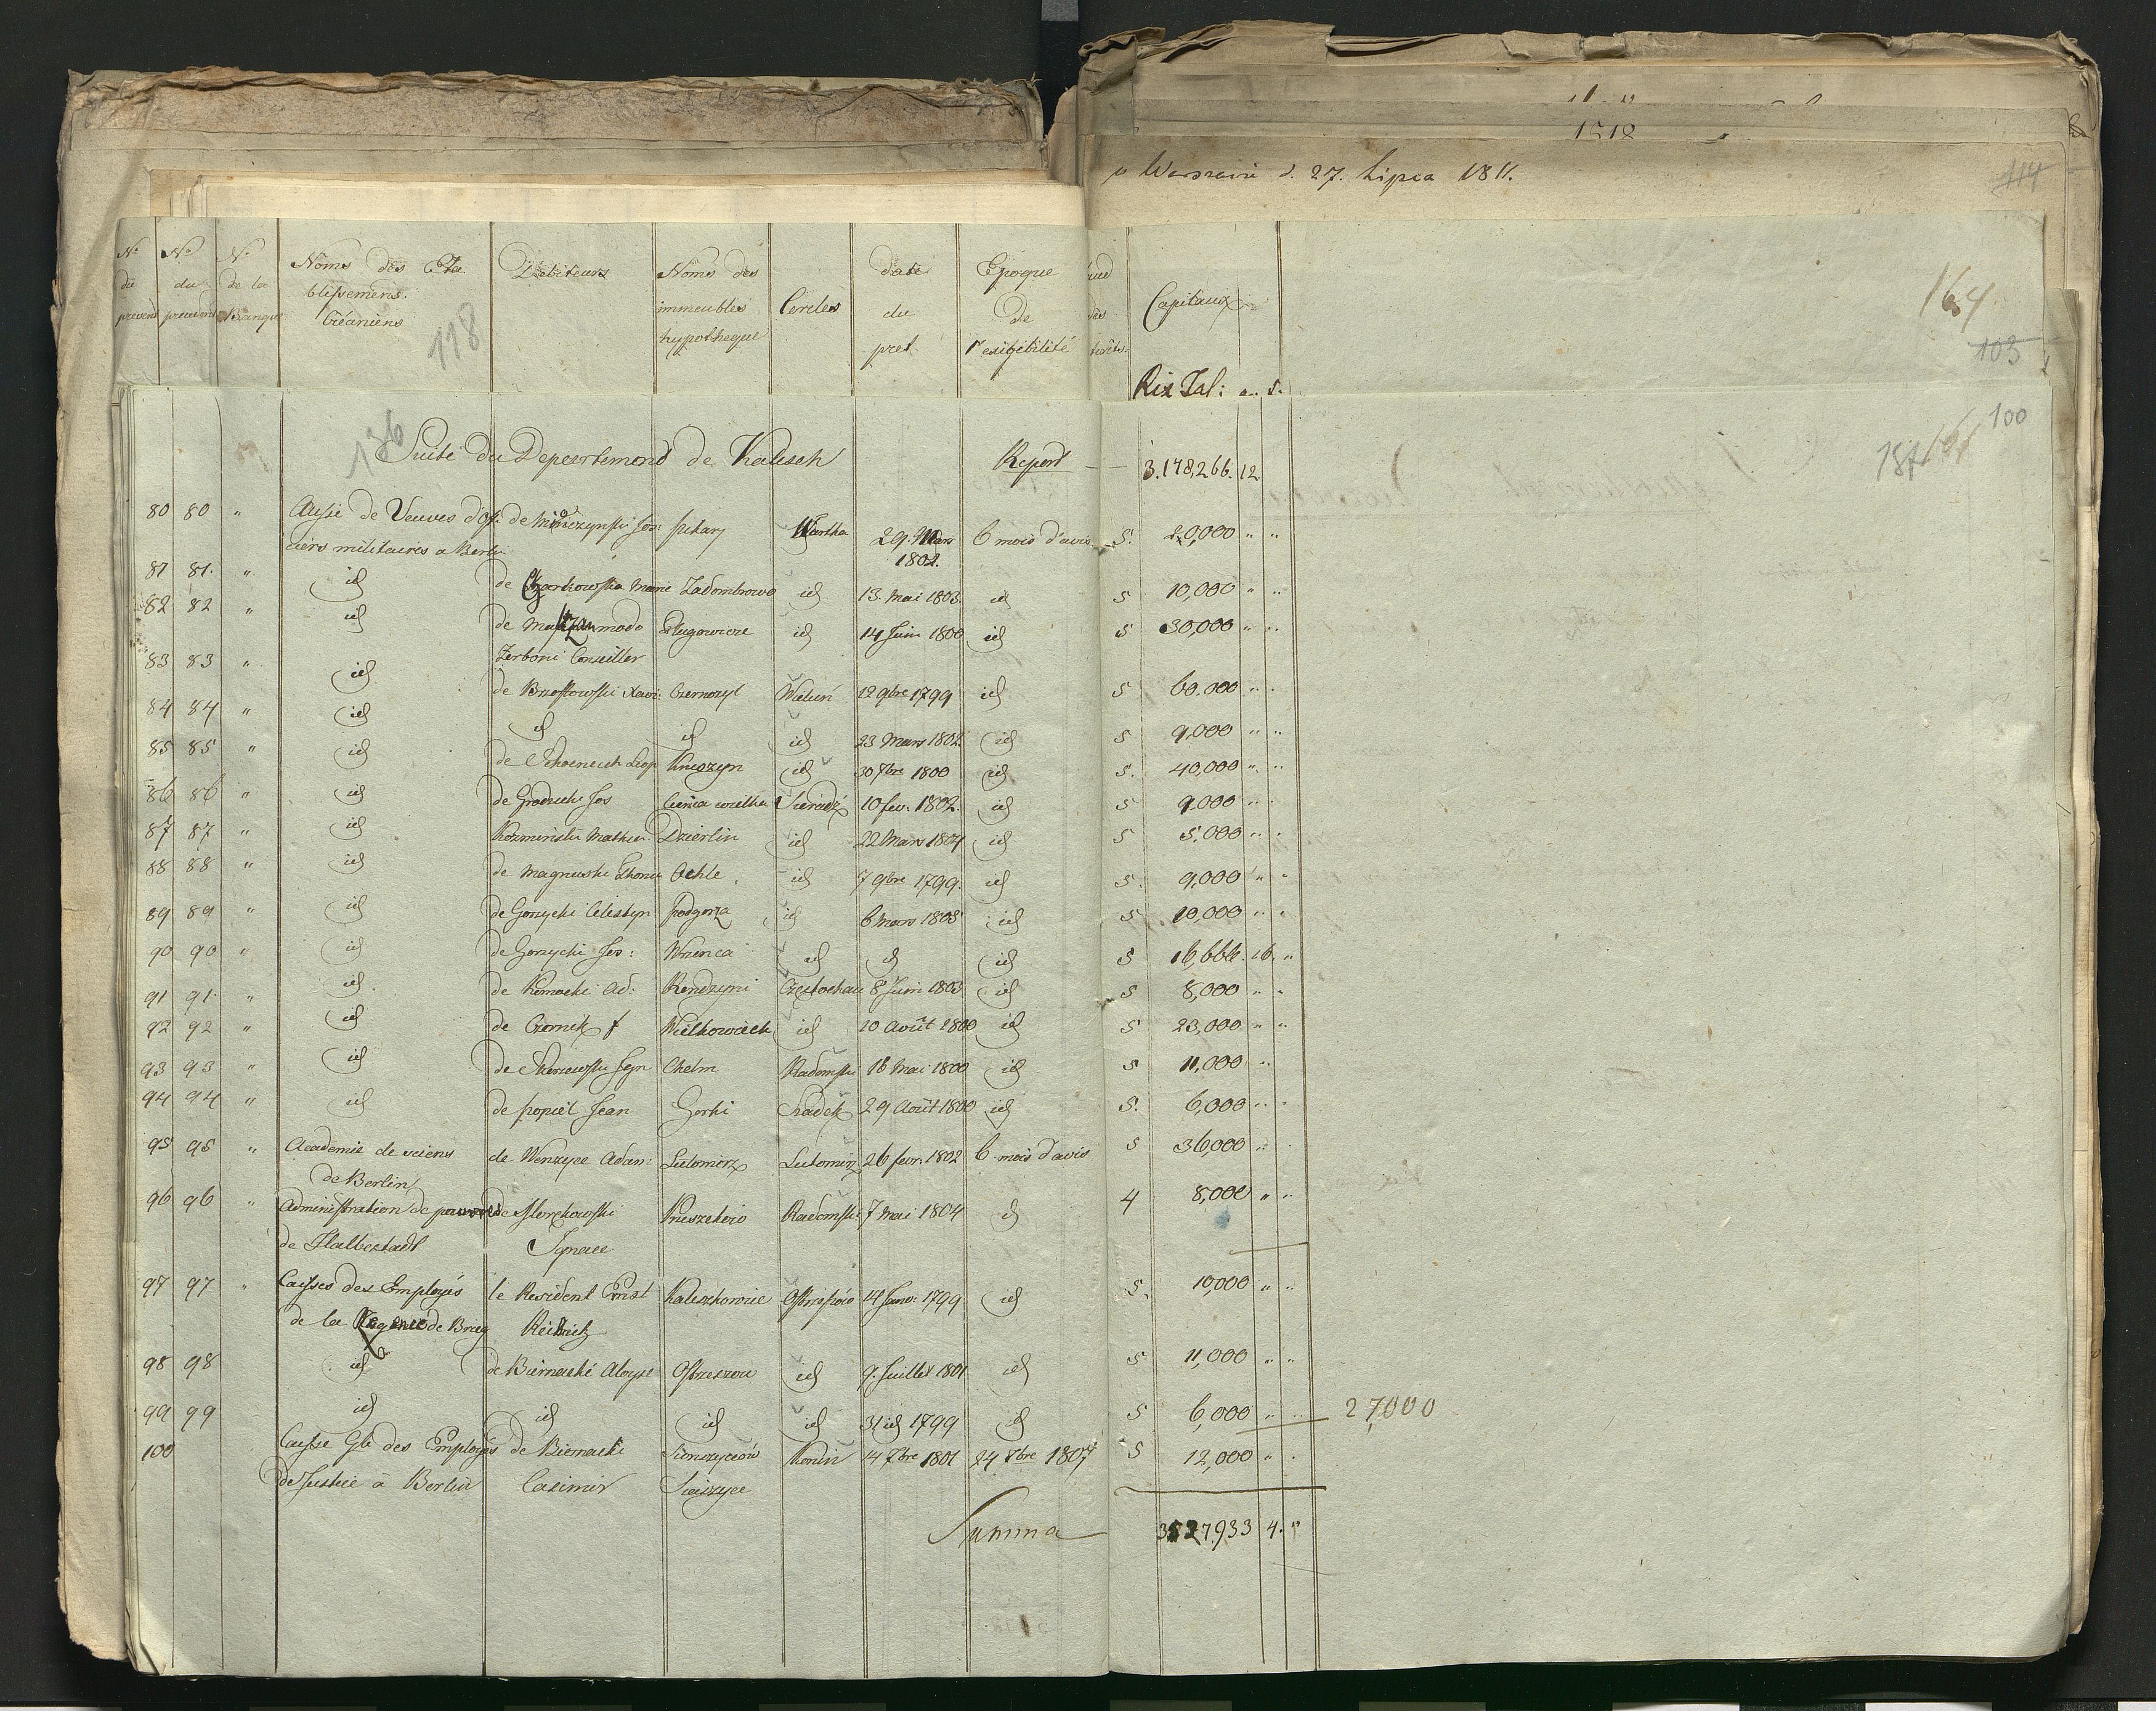 w Warszawie d. 27. Lipca 1811.
114
No du present No du precedent No de la Banque Noms des Etablissemens Créanciers Debiteurs Noms des immeubles hypotheque Cercles date du pret Epoque de l'exigibilité Capitaux
118
164
103
Rix Tal:
136
100
187
Suite du Departement de Kalisch Report 3.178,266. 12
80 80 " Caisse de Veuves d'Officiers militaires a Berlin Wartha 29. Mars 1802. 6 mois d'avis 5. 20,000 " "
81 81. " id de Czarkowska Marie Zadombrowa id 13. Mai 1803 id 5 10,000 " "
82 82 " id modo Zerboni Conseiller Dlugowicze id 14 Juin 1800 id 5 30,000 " "
83 83 " id de Brzostowski Xavi: Czernozyl Wielun 12 9bre 1799 id 5 60.000 " "
84 84 " id id id id 23 Mars 1802 id 5 9,000 " "
85 85 " id de Schoeneich Leop Kruszyn id 30 7bre 1800 id 5. 40,000 " "
86 86 " id de Grodzicki Jos Cienia wielka Sieradz 10 fev. 1802. id 5 9.000 " "
87 87 " id Kozminski Mathieu Dzierlin id 22 Mars 1804 id 5 5.000 " "
88 88 " id de Magnuski id 7 9bre 1799. id 5. 9,000 " "
89 89 " id de Gorzycki Celestyn Podgorza id 6 Mars 1803 id 5 10,000 " "
90 90 " id de Gorzycki Jos: Wrzonca id id id 5 16,666. 16. "
91 91. " id. de Kemocki Ad: Rendzyni Częstochau 8 Juin 1803 id 5 8,000 " "
92 92 " id de Czernik f Wielkowieck id 20 Août 1800 id 5 23,000 " "
93 93 " id Chelm Radomski 16 Mai 1800 id 5 11,000 " "
94 94 " id de Popiel Jean Gorki Szadek 29 Août 1800 id 5. 6,000 " "
95 95 " Academie de sciens de Berlin de Wenzyce Adam: Lutomirz Lutomirz 26 fevr. 1802 6 mois d'avis 5 36,000 " "
96 96 " Administration de pauvres de Halberstadt Ignace Radomski 7 Mai 1804 id 4 8,000 " "
97 97 " Caisses des Employés de la Regence de Brieg le President Kaliszkowice Ostrzeszów 14 Janv: 1799 id 5. 10,000 " "
98 98 id de Biernacki Aloyse Ostrzeszow id 9. Juillet 1801 id 5 11,000 " "
99 99 id id id id 31 id 1799 id 5 6,000 " " 27,000
100 Caisse Gle des Employés de Justice à Berlin de Biernacki Casimir Konin 14 7bre 1801 24 7bre 1807 5 12,000 " "
Summa 3527,933 4. "